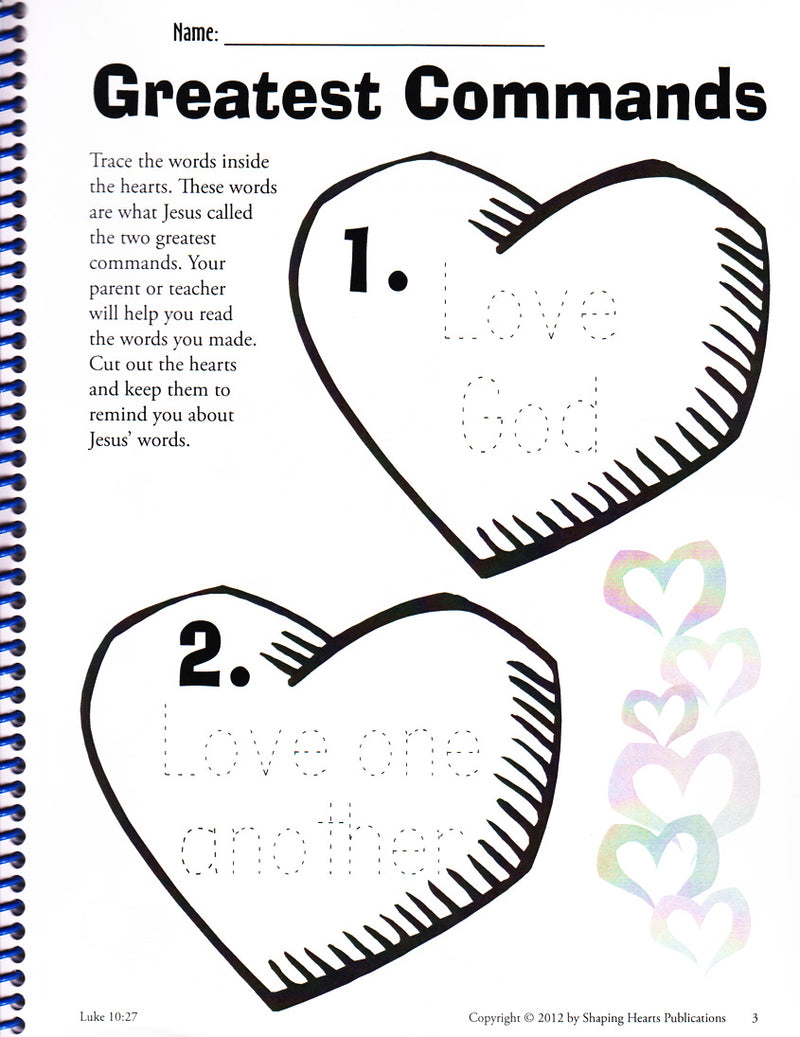 Name:
Greatest Commands
Trace the words inside
the hearts. These words
are what Jesus called
the two greatest
commands. Your
parent or teacher
will help you read
the words you made.
Cut out the hearts
and keep them to
remind you about
Jesus’ words.
1.
Love
God
2.
Love one
another
Luke 10:27
Copyright © 2012 by Shaping Hearts Publications 3